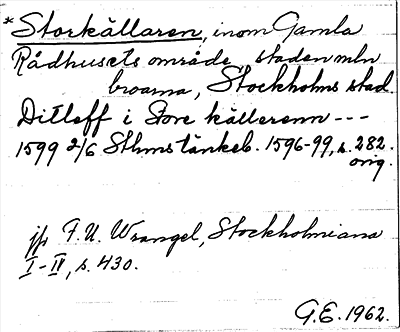 * Storkällaren, inom Gamla
Rådhusets område, staden mln
broarna, Stockholms stad.
Ditleff i Store källerenn ---
1599 2/6 Sthms tänkeb. 1596-99, s. 282.
orig.
jfr F.U. Wrangel, Stockholmiana
I-II, s. 430.
G.E. 1962.